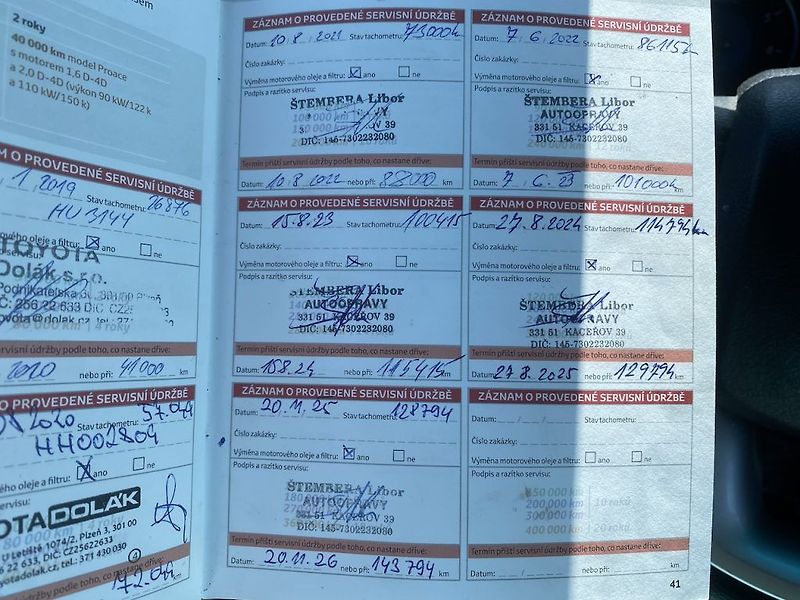 2 roky
40 000 km model Proace
s motorem 1,6 D-4D
a 2,0 D-4D (výkon 90 kW/122 k
a 110 kW/150 k)
M O PROVEDENÉ SERVISNÍ ÚDRŽBĚ
1 2019 Stav tachometru: 26876
HU3144
ového oleje a filtru: ano ne
TOYOTA
Dolák s.r.o.
80 000 km | 4 roky
ervisní údržby podle toho, co nastane dříve:
2020 nebo při: 41000 km
M O PROVEDENÉ SERVISNÍ ÚDRŽBĚ
2020 Stav tachometru:
HH002804
ového oleje a filtru: ano ne
OTA DOLÁK
U Letiště 1074/2, Plzeň 3, 301 00
DIČ: CZ25622633
tel.: 371 430 030
ní údržby podle toho, co nastane dříve:
ZÁZNAM O PROVEDENÉ SERVISNÍ ÚDRŽBĚ
Datum: 10.8.2021 Stav tachometru: 73000k
Číslo zakázky:
Výměna motorového oleje a filtru: ano ne
Podpis a razítko servisu:
ŠTEMBERA Libor
DIČ: 145-7302232080
Termín příští servisní údržby podle toho, co nastane dříve:
Datum: 10.8.2022 nebo při: 88000 km
ZÁZNAM O PROVEDENÉ SERVISNÍ ÚDRŽBĚ
Datum: 7.6.2022 Stav tachometru: 86115k
Číslo zakázky:
Výměna motorového oleje a filtru: ano ne
Podpis a razítko servisu:
ŠTEMBERA Libor
AUTOOPRAVY
331 51 KACEŘOV 39
DIČ: 145-7302232080
Termín příští servisní údržby podle toho, co nastane dříve:
Datum: 7.6.23 nebo při: 101000k km
ZÁZNAM O PROVEDENÉ SERVISNÍ ÚDRŽBĚ
Datum: 15.8.23 Stav tachometru: 100415
Číslo zakázky:
Výměna motorového oleje a filtru: ano ne
Podpis a razítko servisu:
ŠTEMBERA Libor
AUTOOPRAVY
331 51 KACEŘOV 39
DIČ: 145-7302232080
Termín příští servisní údržby podle toho, co nastane dříve:
Datum: 15.8.24 nebo při: 115415 km
ZÁZNAM O PROVEDENÉ SERVISNÍ ÚDRŽBĚ
Datum: 27.8.2024 Stav tachometru: 114794km
Číslo zakázky:
Výměna motorového oleje a filtru: ano ne
Podpis a razítko servisu:
ŠTEMBERA Libor
AUTOOPRAVY
331 51 KACEŘOV 39
DIČ: 145-7302232080
Termín příští servisní údržby podle toho, co nastane dříve:
Datum: 27.8.2025 nebo při: 129794 km
ZÁZNAM O PROVEDENÉ SERVISNÍ ÚDRŽBĚ
Datum: 20.11.25 Stav tachometru: 128794
Číslo zakázky:
Výměna motorového oleje a filtru: ano ne
Podpis a razítko servisu:
ŠTEMBERA Libor
331 51 KACEŘOV 39
DIČ: 145-7302232080
Termín příští servisní údržby podle toho, co nastane dříve:
Datum: 20.11.26 nebo při: 143794 km
ZÁZNAM O PROVEDENÉ SERVISNÍ ÚDRŽBĚ
Datum: Stav tachometru:
Číslo zakázky:
Výměna motorového oleje a filtru: ano ne
Podpis a razítko servisu:
150 000 km | 10 roků
200 000 km
300 000 km
400 000 km | 20 roků
Termín příští servisní údržby podle toho, co nastane dříve:
Datum: nebo při: km
41